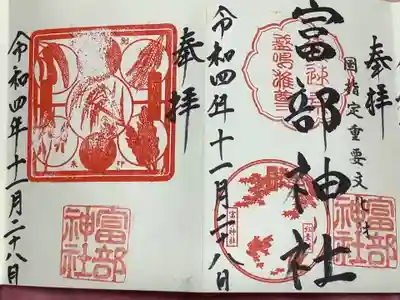 奉拝
国指定重要文化財
富部神社
令和四年十一月二十八日
富部神社
富部神社
奉拝
令和四年十一月二十八日
富部神社